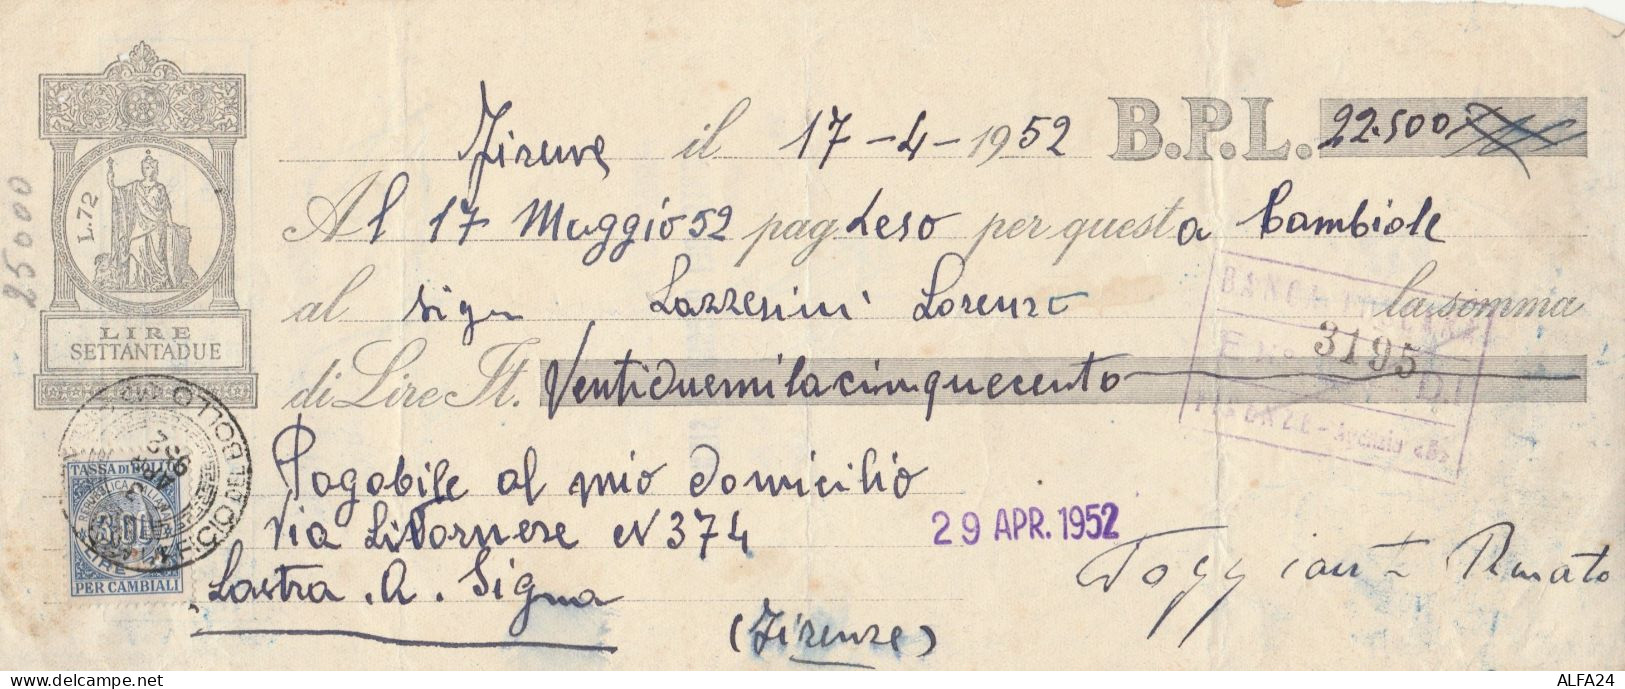 Firenze il 17-4-1952 B.P.L. 22.500
Al 17 Maggio 52 pagherò per questa Cambiale
al Sign Lazzerini Lorenzo la somma
di Lire It. Ventiduemilacinquecento
Pagabile al mio domicilio
Via Livornese N 374
Lastra. A. Signa
(Firenze)
29 APR. 1952
Renato
L.72
LIRE
SETTANTADUE
25000
BANCA
3195
D.I
TASSA DI BOLLO
REPUBBLICA ITALIANA
LIRE
PER CAMBIALI
BOLLO
APR
delcampe.net
ALFA24